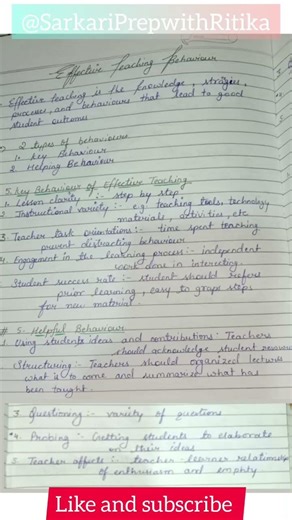 @SarkariPrepwithRitika
Effective Teaching Behaviour
Effective teaching is the knowledge, stragies,
processes, and behaviours that lead to good
student outcomes
2 types of behaviours
1. Key Behaviour
2 Helping Behaviour
5 Key Behaviour of Effective Teaching
1. Lesson clarity - step by step
2 Instructional variety :- e.g. teaching tools, technology
materials, activities, etc
3 Teacher task orientations :- time spent teaching
prevent distracting behaviour
4. Engagement in the learning process :- independent
work done in interesting
Student success rate :- student should refers
prior learning, easy to grasp steps
for new material.
# 5- Helpful Behaviour
1. Using students ideas and contributions : Teachers
should acknowledge student
Structuring :- Teachers should organized lectures
what is to come and summarize what has
been taught.
3. Questioning :- variety of questions
4. Probing :- Getting students to elaborate
on their ideas
5 Teacher affects :- teacher-learner relationship
of enthusiasm and empthy
Like and subscribe